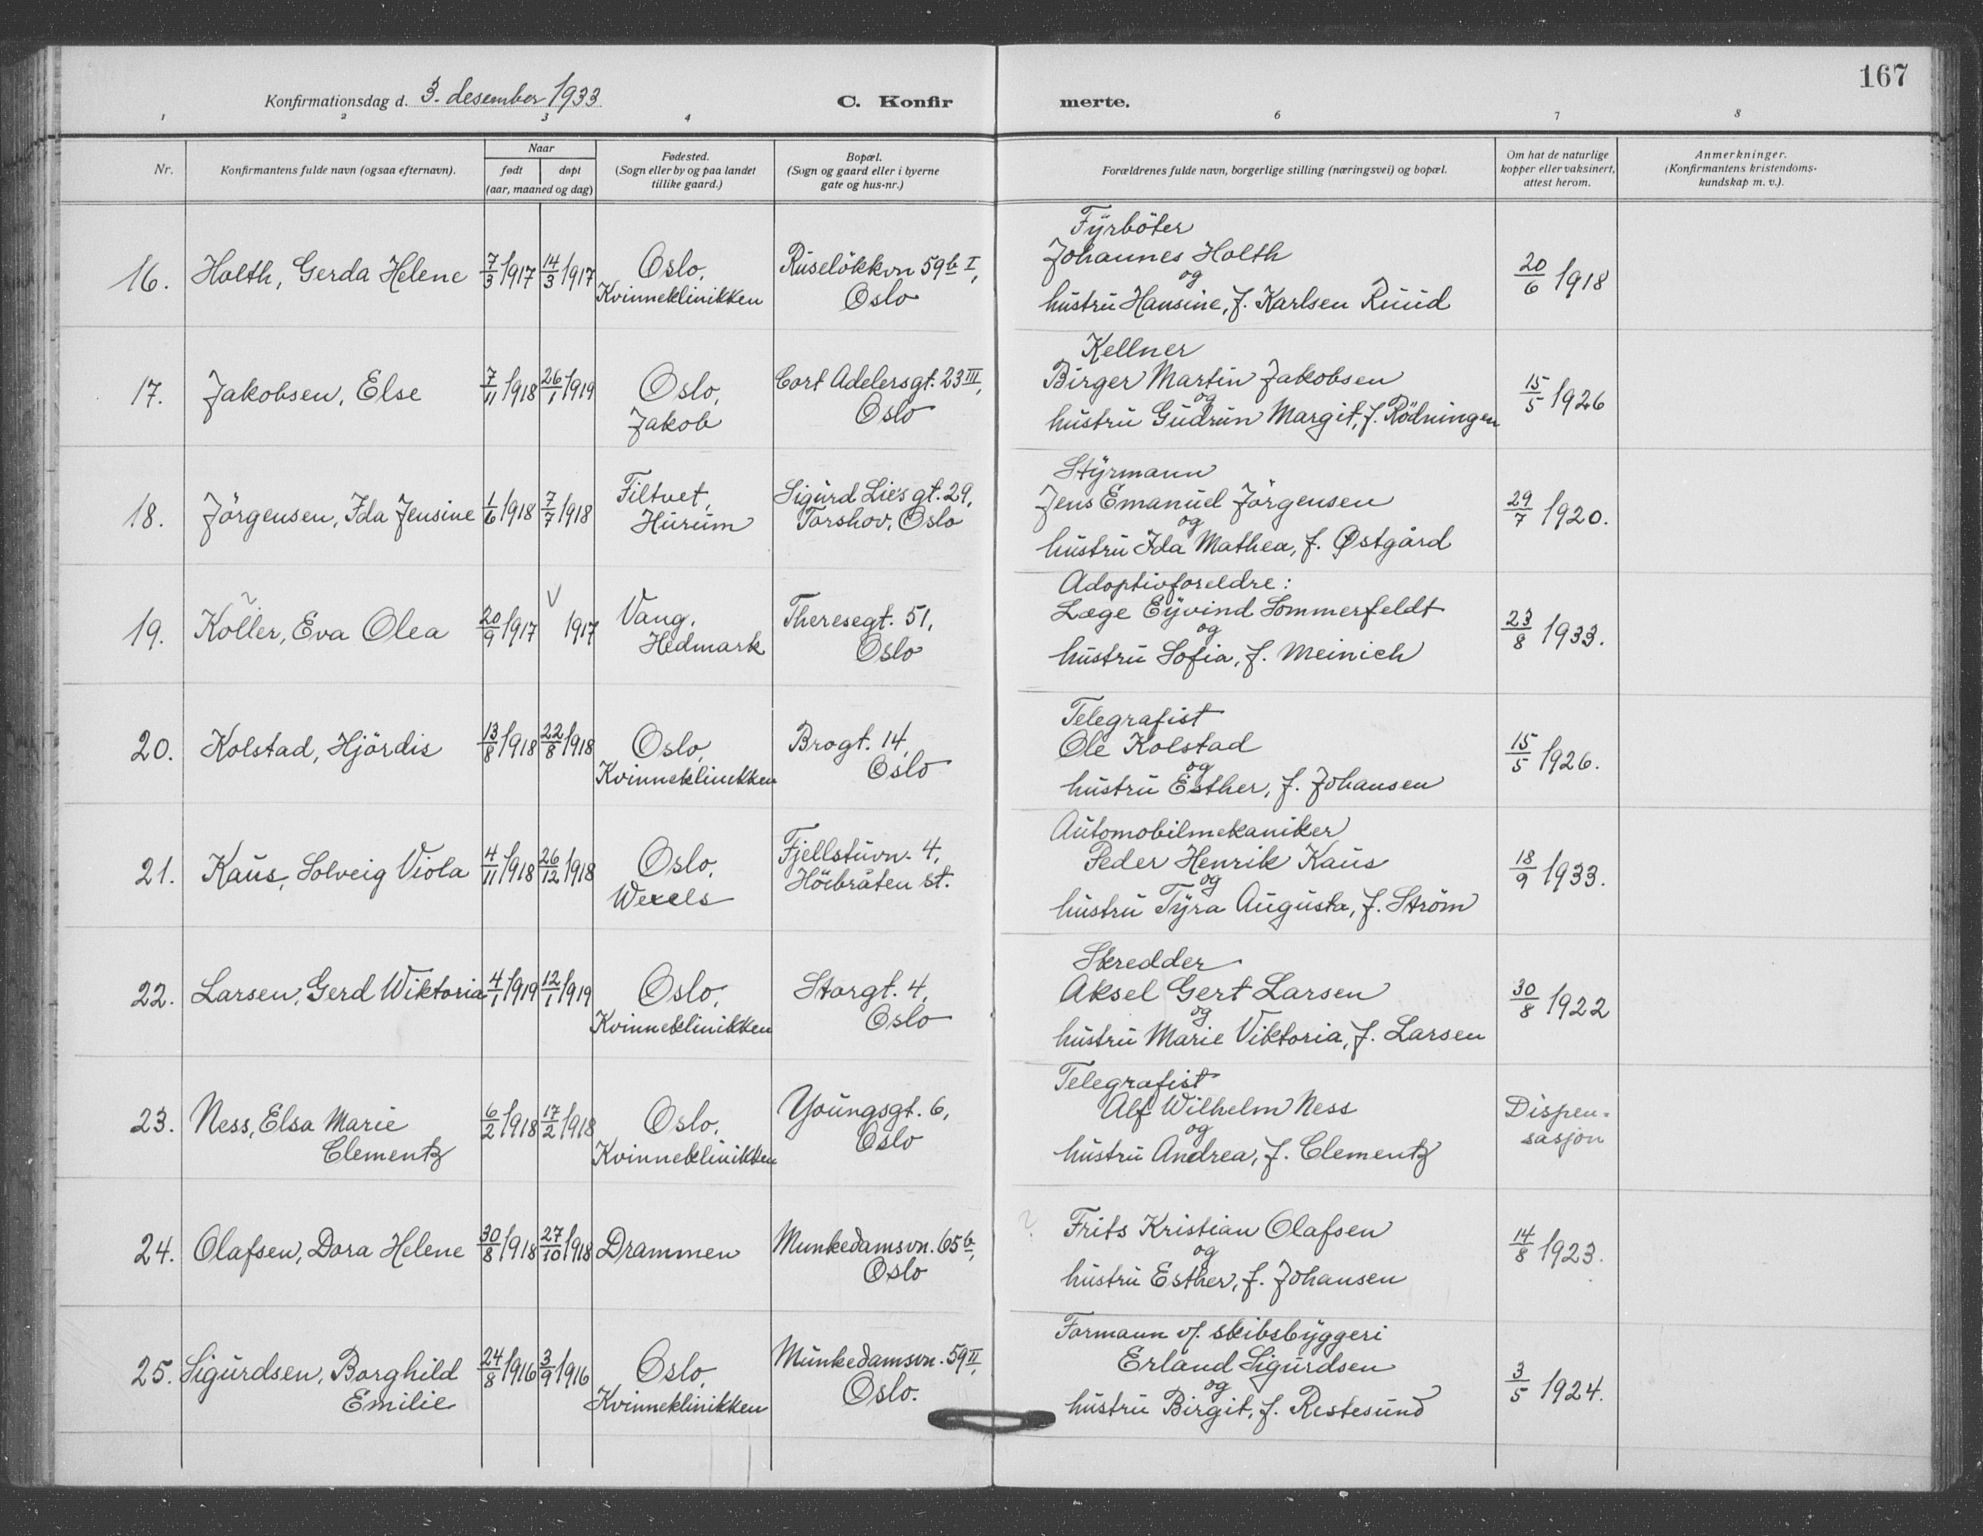 167
Konfirmationsdag d. 3. desember 1933
C. Konfirmerte.
1 2 3 4 6 7 8
Nr.
Konfirmantens fulde navn (ogsaa efternavn).
Naar
født døpt
(aar, maaned og dag)
Fødested.
(Sogn eller by og paa landet
tillike gaard.)
Bopæl.
(Sogn og gaard eller i byerne
gate og hus-nr.)
Forældrenes fulde navn, borgerlige stilling (næringsvei) og bopæl.
Om hat de naturlige
kopper eller vaksinert,
attest herom.
Anmerkninger.
(Konfirmantens kristendoms-
kundskap m. v.).
16. Holth, Gerda Helene 7/3 1917 14/3 1917
Oslo,
Kvinneklinikken
Ruseløkkvn 59b I,
Oslo
Fyrböter
Johannes Holth
og
hustru Hansine, f. Karlsen Ruud
20/6 1918
17. Jakobsen, Else 7/11 1918 26/1 1919
Oslo,
Jakob
Cort Adelersgt. 23 III,
Oslo
Kellner
Birger Martin Jakobsen
og
hustru Gudrun Margit, f. Rödningen
15/5 1926
18. Jörgensen, Ida Jensine 1/6 1918 7/7 1918
Filtvet,
Hurum
Sigurd Lies gt. 29,
Torshov, Oslo
Styrmann
Jens Emanuel Jörgensen
og
hustru Ida Mathea, f. Østgård
29/7 1920.
19. Köller, Eva Olea 20/9 1917 V 1917
Vang,
Hedmark
Theresegt. 51,
Oslo
Adoptivforeldre:
Læge Eyvind Sommerfeldt
og
hustru Sofia, f. Meinich
23/8 1933.
20. Kolstad, Hjördis 13/8 1918 22/8 1918
Oslo,
Kvinneklinikken
Brogt. 14,
Oslo
Telegrafist
Ole Kolstad
og
hustru Esther, f. Johansen
15/5 1926.
21. Kaus, Solveig Viola 4/11 1918 26/12 1918
Oslo,
Wexels
Fjellstuvn. 4,
Höibråten st.
Automobilmekaniker
Peder Henrik Kaus
og
hustru Tyra Augusta, f. Ström
18/9 1933.
22. Larsen, Gerd Wiktoria 4/1 1919 12/1 1919
Oslo,
Kvinneklinikken
Storgt. 4,
Oslo
Skredder
Aksel Gert Larsen
og
hustru Marie Viktoria, f. Larsen
30/8 1922
23. Ness, Elsa Marie
Clementz
6/2 1918 17/2 1918
Oslo,
Kvinneklinikken
Youngsgt. 6,
Oslo
Telegrafist
Alf Wilhelm Ness
og
hustru Andrea, f. Clementz
Dispen-
sasjon
24. Olafsen, Dora Helene 30/8 1918 27/10 1918
Drammen
Munkedamsvn. 65b,
Oslo
? Frits Kristian Olafsen
og
hustru Esther, f. Johansen
14/8 1923.
25. Sigurdsen, Borghild
Emilie
24/8 1916 3/9 1916
Oslo,
Kvinneklinikken
Munkedamsvn. 59 II,
Oslo.
Formann v/. skibsbyggeri
Erland Sigurdsen
og
hustru Birgit, f. Restesund
3/5 1924.